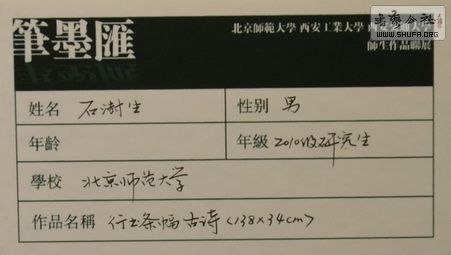 筆墨匯
北京師範大學 西安工業大學
師生作品聯展
WWW.SHUFA.ORG
姓名 石澍生
性别 男
年齡
年級 2010级研究生
學校 北京师范大学
作品名稱 行书条幅 古诗 (138×34cm)